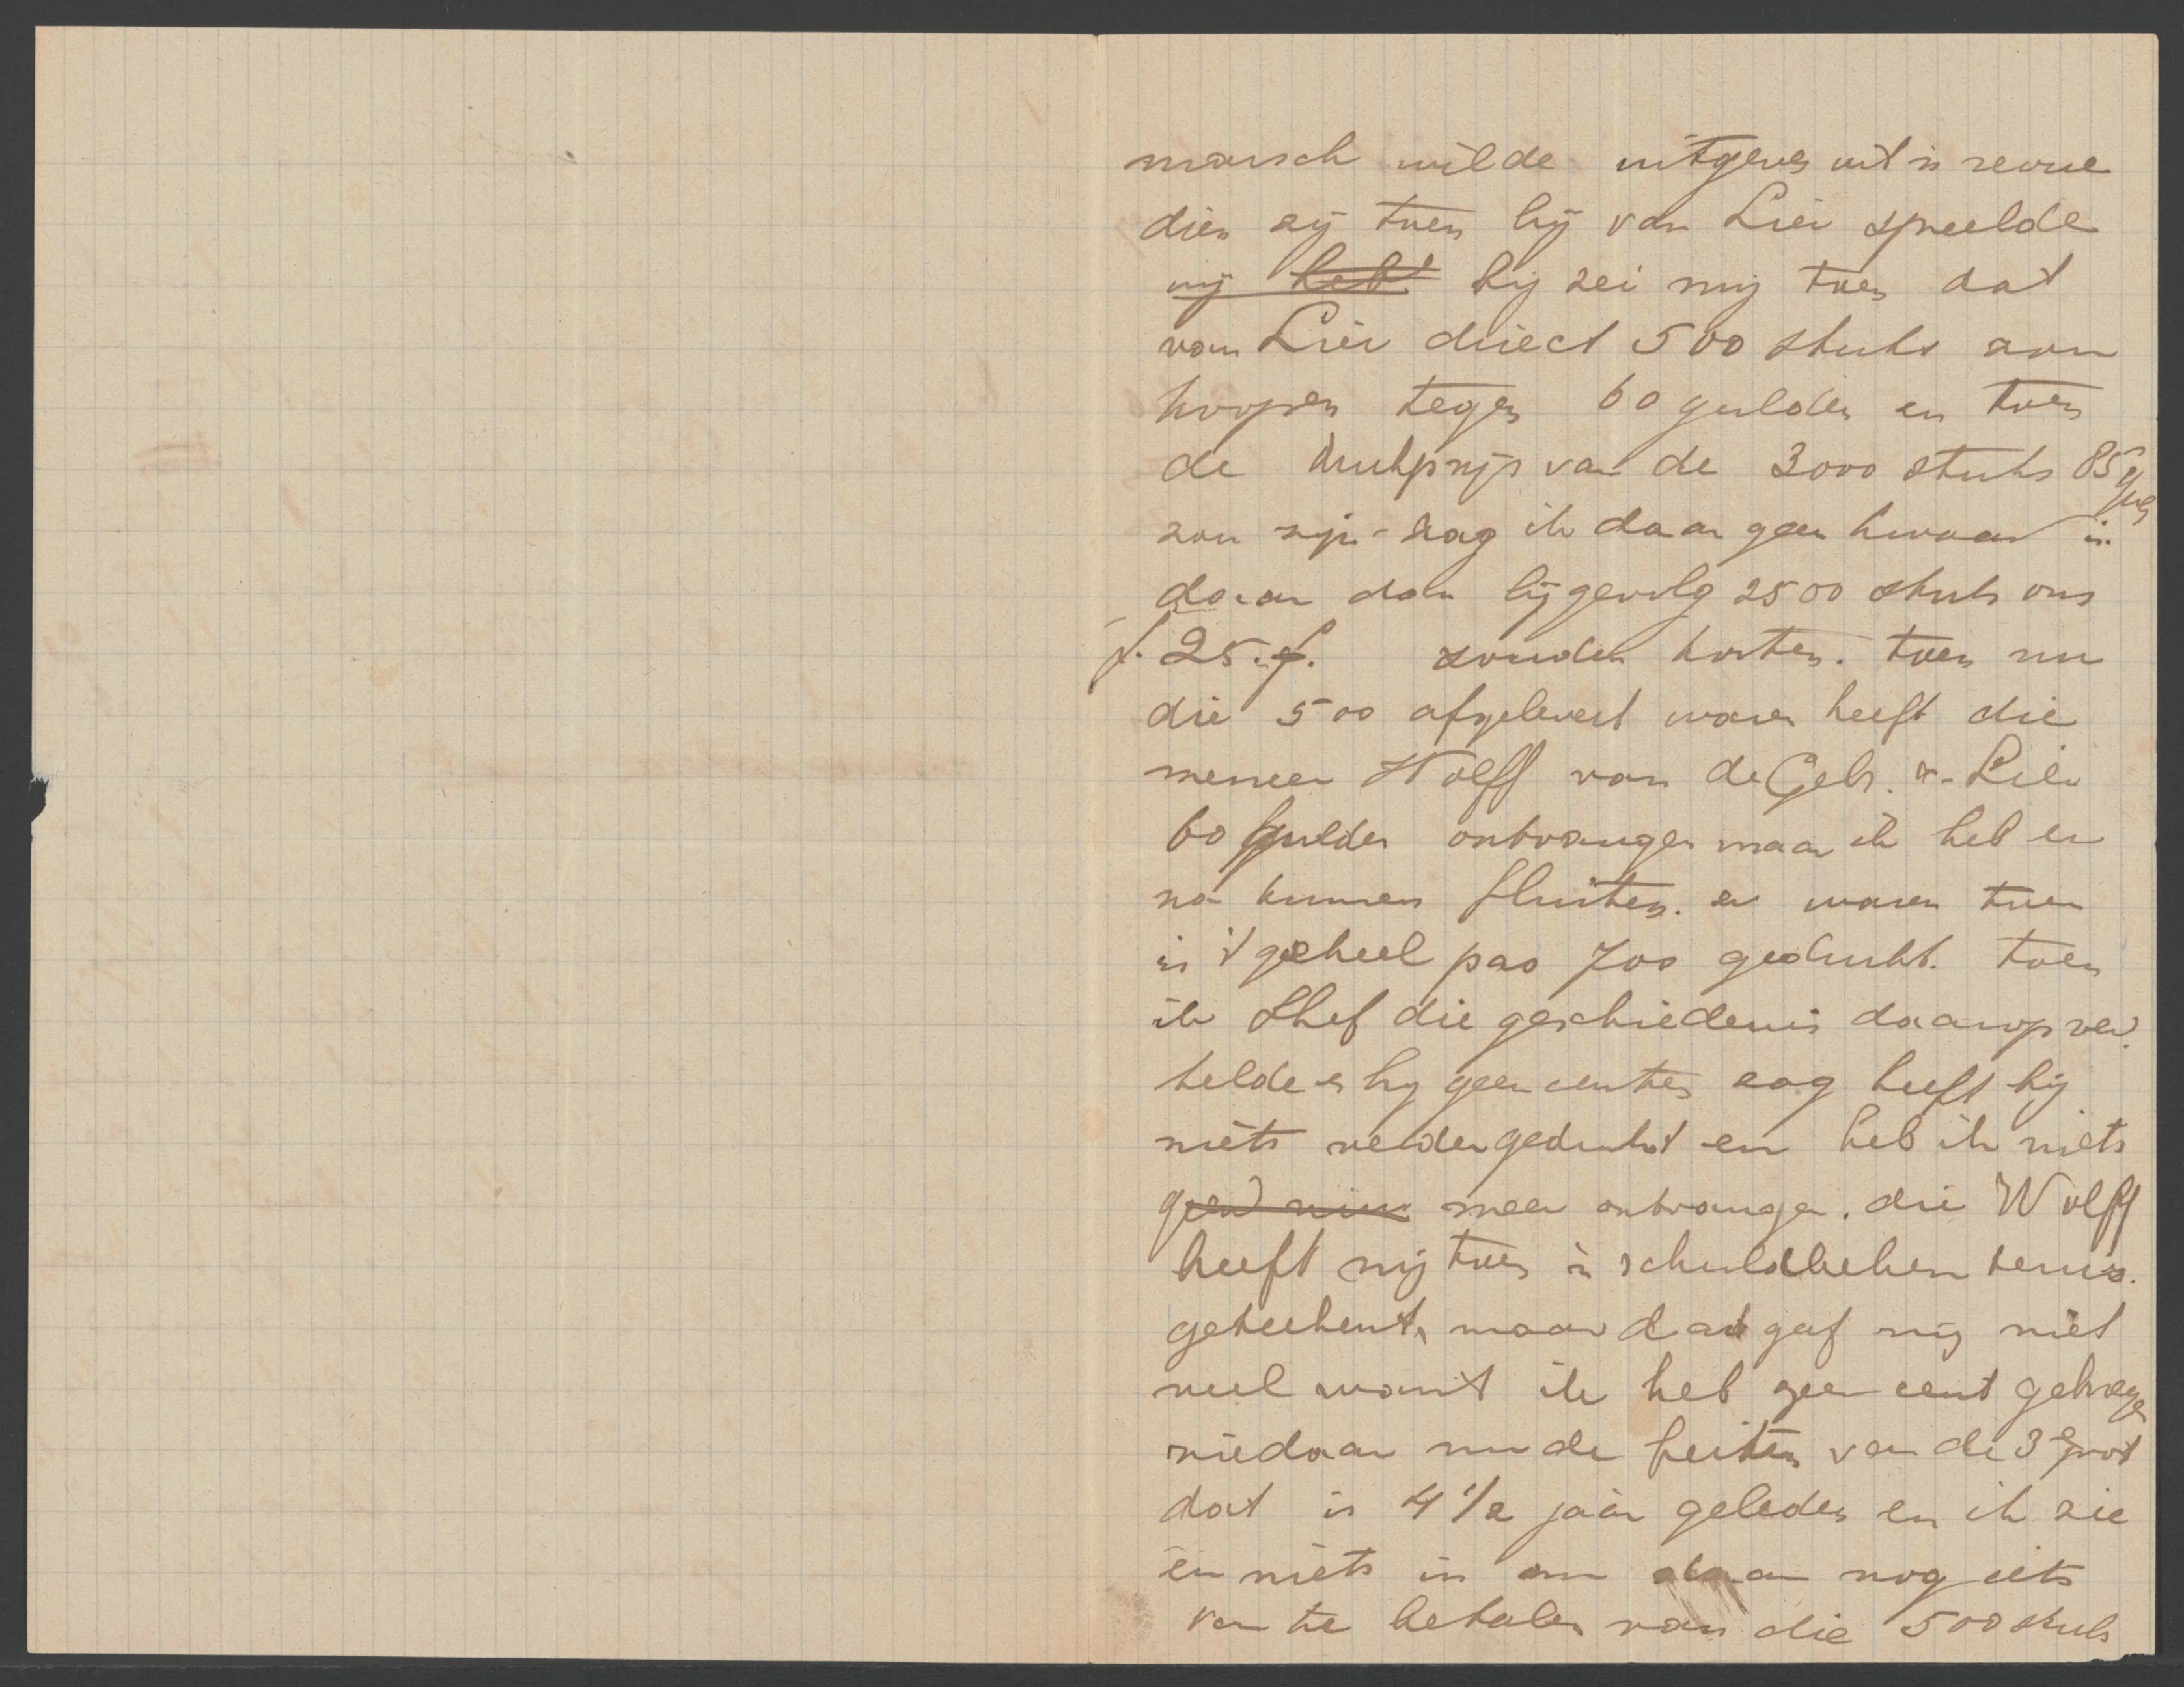 marsch wilde uitgeven uit 'n revue
dien zij toen bij van Lier speelde
mij hebt hij zei mij toen dat
van Lier direct 500 stuks zou
koopen tegen 60 gulden en toen
de drukprijs van de 3000 stuks 85 gul
zou zijn - zag ik daar geen kwaad in
daar dan bijgevolg 2500 stuks ons
f. 25.- f. zouden kosten. toen nu
die 500 afgelevert waren heeft die
meneer Wolff van de Gebr. v. Lier
60 gulden ontvangen maar ik heb er
na kunnen fluiten. er waren toen
in 't geheel pas 700 gedrukt. toen
ik Shef die geschiedenis daarop ver-
telde en hij geen centen zag heeft hij
niets verder gedrukt en heb ik niets
meer ontvangen. die Wolff
heeft mij toen 'n schuldbekentenis.
geteekent, maar dat gaf mij niet
veel want ik heb geen cent gekregen
ziedaar nu de feiten van de 3e post
dat is 4 1/2 jaar geleden en ik zie
er niets in om daar nog iets
van te betalen van die 500 stuks